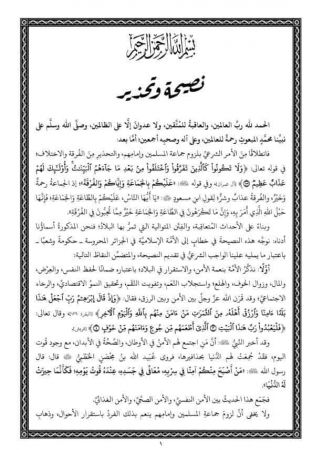 بسم الله الرحمن الرحيم
نصيحة وتحذير
الحمد لله ربِّ العالمين، والعاقبة للمُتَّقين، ولا عدوان إلَّا على الظالمين، وصلَّى الله وسلَّم على
نبيِّنا محمَّدٍ المبعوث رحمةً للعالمين، وعلى آله وصحبه أجمعين؛ أمَّا بعد:
فانطلاقًا مِنَ الأمر الشرعيِّ بلزوم جماعة المسلمين وإمامِهم، والتحذيرِ مِنَ الفُرقة والاختلاف؛
في قوله تعالى: ﴿وَلَا تَكُونُوا كَالَّذِينَ تَفَرَّقُوا وَاخْتَلَفُوا مِنْ بَعْدِ مَا جَاءَهُمُ الْبَيِّنَاتُ وَأُولَئِكَ لَهُمْ
عَذَابٌ عَظِيمٌ﴾ [آل عمران]، وفي قوله ﷺ: «عَلَيْكُمْ بِالجَمَاعَةِ وَإِيَّاكُمْ وَالفُرْقَةَ»؛ إذ الجماعةُ رحمةٌ
وخيرٌ، والفُرقة عذابٌ وشرٌّ؛ لقول ابنِ مسعودٍ: «يَا أَيُّهَا النَّاسُ، عَلَيْكُمْ بِالطَّاعَةِ وَالجَمَاعَةِ؛ فَإِنَّهَا
حَبْلُ اللهِ الَّذِي أَمَرَ بِهِ، وَإِنَّ مَا تَكْرَهُونَ فِي الجَمَاعَةِ خَيْرٌ مِمَّا تُحِبُّونَ فِي الفُرْقَةِ».
وبناءً على الأحداث المتعاقبة، والفِتَن المتوالية التي تمرُّ بها البلاد؛ فنحن المذكورةَ أسماؤنا
أدناه، نوجِّه هذه النصيحةَ في خطابٍ إلى الأمَّة الإسلاميَّة في الجزائر المحروسة ـ حكومةً وشعبًا ـ
باعتبار ما يمليه علينا الواجب الشرعيُّ في تقديم النصيحة، والمتضمِّن النقاطَ التالية:
أوَّلًا: نذكِّر الأمَّةَ بنعمة الأمن، والاستقرار في البلاد؛ باعتباره ضمانًا لحفظ النفس، والعِرض،
والمال، وزوالِ الخوف، والهلع؛ واستجلابِ النِّعَم، وتفويتِ النِّقَم، وتحقيقِ النموِّ الاقتصاديِّ، والرخاءِ
الاجتماعيِّ؛ وقد قَرَن اللهُ عزَّ وجلَّ بين الأمن وبين الرزق، فقال: ﴿وَإِذْ قَالَ إِبْرَاهِيمُ رَبِّ اجْعَلْ هَذَا
بَلَدًا آمِنًا وَارْزُقْ أَهْلَهُ مِنَ الثَّمَرَاتِ مَنْ آمَنَ مِنْهُمْ بِاللَّهِ وَالْيَوْمِ الْآخِرِ﴾ [البقرة: ١٢٦]، وقال تعالى:
﴿فَلْيَعْبُدُوا رَبَّ هَذَا الْبَيْتِ ٣ الَّذِي أَطْعَمَهُمْ مِنْ جُوعٍ وَآمَنَهُمْ مِنْ خَوْفٍ ٤﴾ [قريش].
وقد أخبر النبيُّ ﷺ: أنَّ مَنِ اجتمع لهم الأمنُ في الأوطان، والصحَّةُ في الأبدان، مع وجود قوت
اليوم، فقَدْ جُمِعَتْ لهم الدنيا بحذافيرها؛ فروى عُبيد الله بنُ مِحْصَنٍ الخَطْمِيُّ، قال: قال رسول الله
ﷺ: «مَنْ أَصْبَحَ مِنْكُمْ آمِنًا فِي سِرْبِهِ، مُعَافًى فِي جَسَدِهِ، عِنْدَهُ قُوتُ يَوْمِهِ؛ فَكَأَنَّمَا حِيزَتْ
لَهُ الدُّنْيَا».
فجَمَع هذا الحديثُ بين الأمن النفسيِّ، والأمنِ الصحِّيِّ، والأمن الغذائيِّ.
ولا يخفى أنَّ لزوم جماعةِ المسلمين وإمامِهم ينعم بذلك الفردُ باستقرار الأحوال، وذهابِ
١